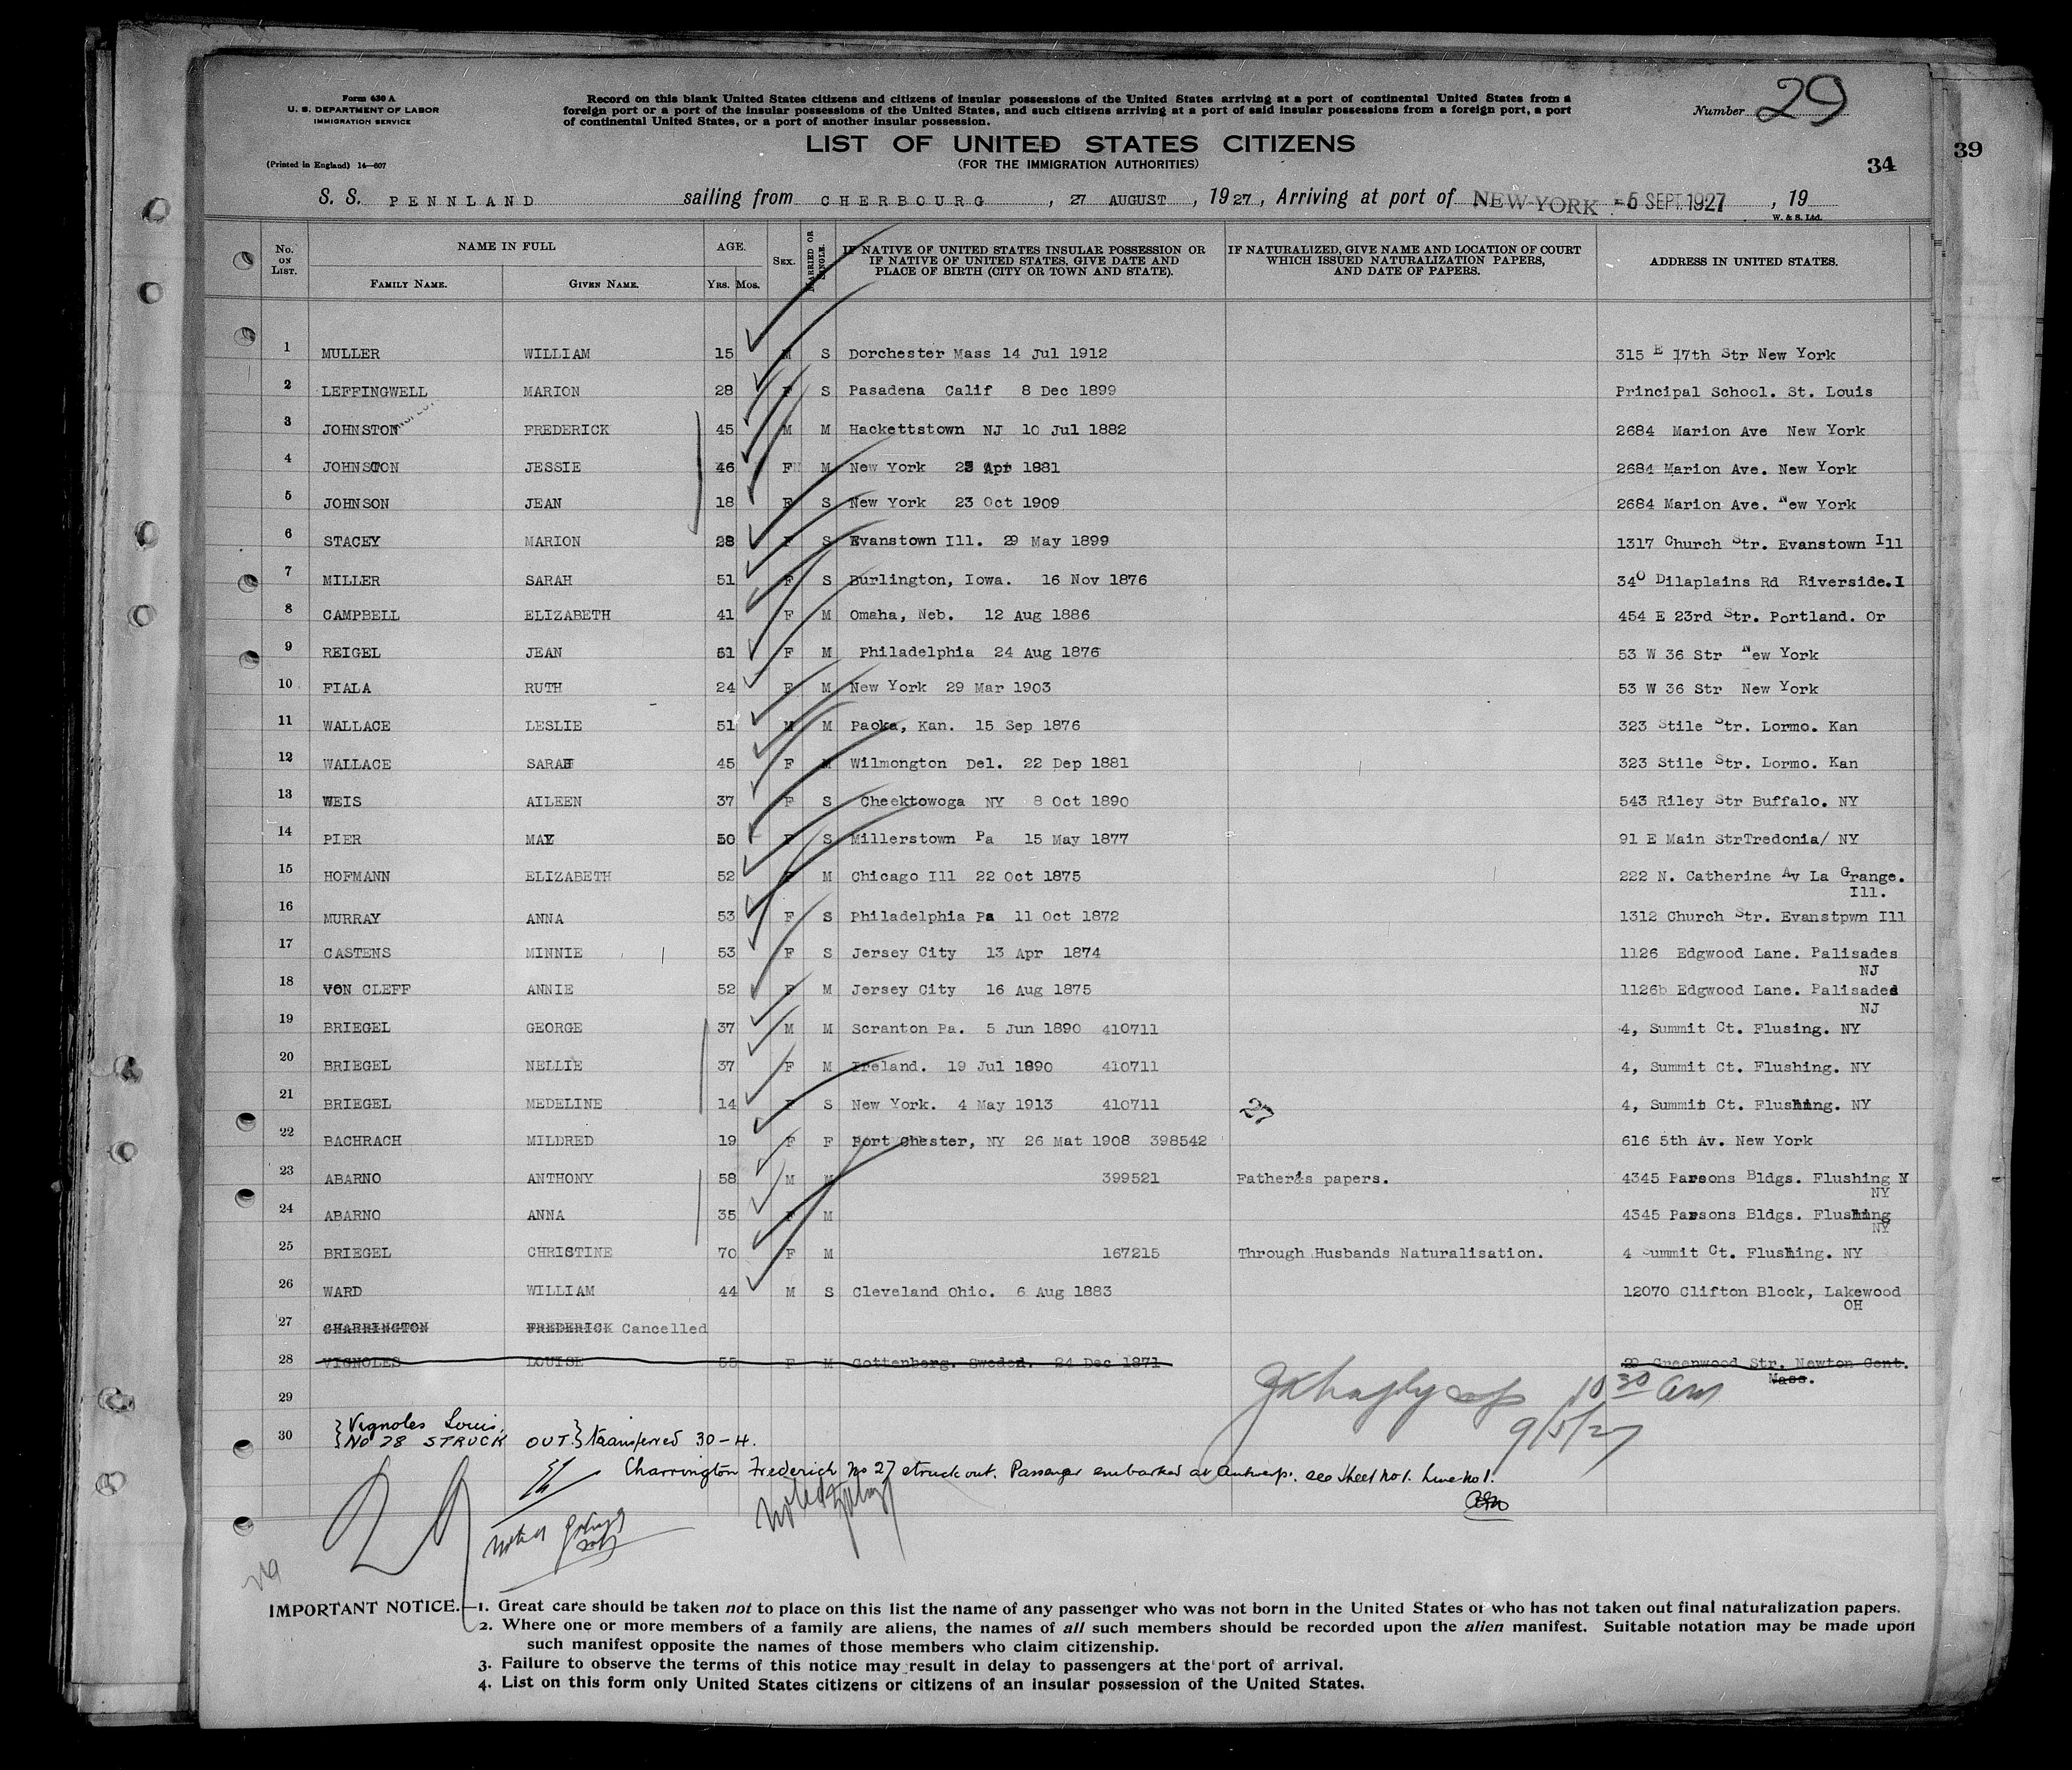 Form 630 A
U. S. DEPARTMENT OF LABOR
IMMIGRATION SERVICE
(Printed in England) 14—607
Record on this blank United States citizens and citizens of insular possessions of the United States arriving at a port of continental United States from a
foreign port or a port of the insular possessions of the United States, and such citizens arriving at a port of said insular possessions from a foreign port, a port
of continental United States, or a port of another insular possession.
Number 29
LIST OF UNITED STATES CITIZENS
(FOR THE IMMIGRATION AUTHORITIES)
34
39
S. S. PENNLAND sailing from CHERBOURG, 27 AUGUST, 1927, Arriving at port of NEW YORK 5 SEPT 1927, 19
W. & S. Ltd.
No. ON LIST. NAME IN FULL FAMILY NAME. GIVEN NAME. AGE. YRS. MOS. SEX. MARRIED OR SINGLE. IF NATIVE OF UNITED STATES INSULAR POSSESSION OR IF NATIVE OF UNITED STATES, GIVE DATE AND PLACE OF BIRTH (CITY OR TOWN AND STATE). IF NATURALIZED, GIVE NAME AND LOCATION OF COURT WHICH ISSUED NATURALIZATION PAPERS, AND DATE OF PAPERS. ADDRESS IN UNITED STATES.
1 MULLER WILLIAM 15 M S Dorchester Mass 14 Jul 1912 315 E 17th Str New York
2 LEFFINGWELL MARION 28 F S Pasadena Calif 8 Dec 1899 Principal School. St. Louis
3 JOHNSTON FREDERICK 45 M M Hackettstown NJ 10 Jul 1882 2684 Marion Ave New York
4 JOHNSTON JESSIE 46 F M New York 25 Apr 1881 2684 Marion Ave. New York
5 JOHNSON JEAN 18 F S New York 23 Oct 1909 2684 Marion Ave. New York
6 STACEY MARION 28 F S Evanstown Ill. 29 May 1899 1317 Church Str. Evanstown Ill
7 MILLER SARAH 51 F S Burlington, Iowa. 16 Nov 1876 340 Dilaplains Rd Riverside.I
8 CAMPBELL ELIZABETH 41 F M Omaha, Neb. 12 Aug 1886 454 E 23rd Str. Portland. Or
9 REIGEL JEAN 51 F M Philadelphia 24 Aug 1876 53 W 36 Str New York
10 FIALA RUTH 24 F M New York 29 Mar 1903 53 W 36 Str New York
11 WALLACE LESLIE 51 M M Paoka, Kan. 15 Sep 1876 323 Stile Str. Lormo. Kan
12 WALLACE SARAH 45 F M Wilmongton Del. 22 Dep 1881 323 Stile Str. Lormo. Kan
13 WEIS AILEEN 37 F S Cheektowoga NY 8 Oct 1890 543 Riley Str Buffalo. NY
14 PIER MAY 50 F S Millerstown Pa 15 May 1877 91 E Main StrTredonia/ NY
15 HOFMANN ELIZABETH 52 F M Chicago Ill 22 Oct 1875 222 N. Catherine Av La Grange.
Ill.
16 MURRAY ANNA 53 F S Philadelphia Pa 11 Oct 1872 1312 Church Str. Evanstpwn Ill
17 CASTENS MINNIE 53 F S Jersey City 13 Apr 1874 1126 Edgwood Lane. Palisades
NJ
18 VON CLEFF ANNIE 52 F M Jersey City 16 Aug 1875 1126b Edgwood Lane. Palisades
NJ
19 BRIEGEL GEORGE 37 M M Scranton Pa. 5 Jun 1890 410711 4, Summit Ct. Flusing. NY
20 BRIEGEL NELLIE 37 F M Ireland. 19 Jul 1890 410711 4, Summit Ct. Flushing. NY
21 BRIEGEL MEDELINE 14 F S New York. 4 May 1913 410711 27 4, Summit Ct. Flushing. NY
22 BACHRACH MILDRED 19 F F Port Chester, NY 26 Mat 1908 398542 616 5th Av. New York
23 ABARNO ANTHONY 58 M M 399521 Father's papers. 4345 Parsons Bldgs. Flushing
NY
24 ABARNO ANNA 35 F M 4345 Parsons Bldgs. Flushing
NY
25 BRIEGEL CHRISTINE 70 F M 167215 Through Husbands Naturalisation. 4 Summit Ct. Flushing. NY
26 WARD WILLIAM 44 M S Cleveland Ohio. 6 Aug 1883 12070 Clifton Block, Lakewood
OH
27 CHARRINGTON FREDERICK Cancelled
28 VIGNOLES LOUISE 55 F M Gottenberg. Sweden. 24 Dec 1871 29 Greenwood Str. Newton Cent.
Mass.
29
10 30 am
9/5/27
30 Vignoles Louis,
No 28 STRUCK OUT. transferred 30-4.
Charrington Frederick No 27 struck out. Passenger embarked at Antwerp. see sheet no 1. Line no 1.
noted
IMPORTANT NOTICE.—1. Great care should be taken not to place on this list the name of any passenger who was not born in the United States or who has not taken out final naturalization papers.
2. Where one or more members of a family are aliens, the names of all such members should be recorded upon the alien manifest. Suitable notation may be made upon
such manifest opposite the names of those members who claim citizenship.
3. Failure to observe the terms of this notice may result in delay to passengers at the port of arrival.
4. List on this form only United States citizens or citizens of an insular possession of the United States.